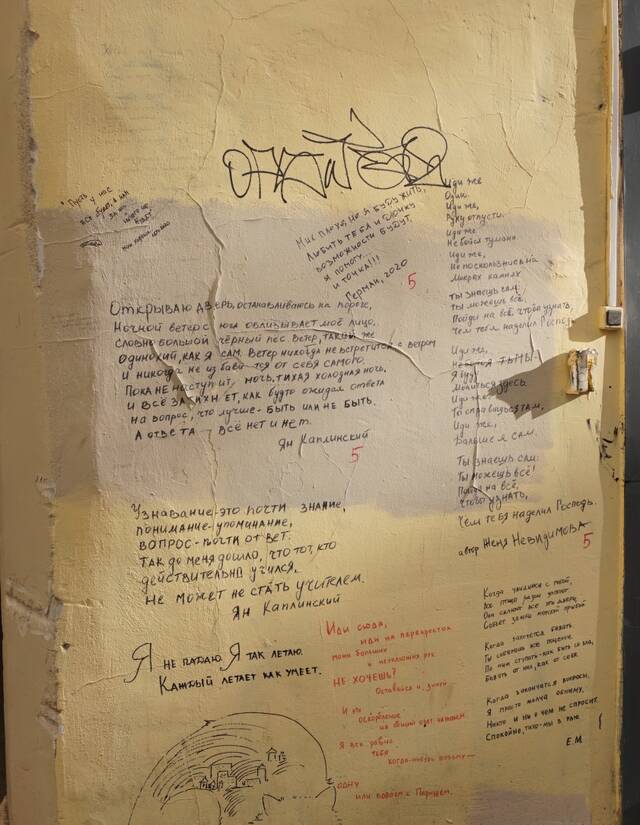 Пусть у нас
всё будет, а нам
за это
ничего не
будет
Мне плохо, но я буду жить,
Любить тебя и глотку
возможности будут,
я помогу
и точка!!!
Герман, 2020
5
Открываю дверь, останавливаюсь на пороге,
Ночной ветер с юга облизывает моё лицо,
словно большой чёрный пёс. Ветер, такой же
одинокий, как я сам. Ветер никогда не встретится с ветром
и никогда не избавится от себя самого.
Пока не наступит, ночь, тихая холодная ночь,
и всё затихнет, как будто ожидая ответа
на вопрос, что лучше - быть или не быть.
А ответа - всё нет и нет.
Ян Каплинский
5
Узнавание - это почти знание,
понимание - упоминание,
вопрос - почти ответ.
Так до меня дошло, что тот, кто
действительно учился,
не может не стать учителем.
Ян Каплинский
Я не падаю. Я так летаю.
Каждый летает как умеет.
Иди же
Один.
Иди же,
Руку отпусти.
Иди же
Не бойся тумана.
Иди же,
Не поскользнись на
Мокрых камнях
Ты знаешь сам:
Ты можешь всё,
Пойди на всё, чтобы узнать,
Чем тебя наделил Господь.
Иди же,
Не бойся тьмы.
Я буду
Молиться здесь.
Иди же
Ты справишься там,
Иди же,
Дальше я сам.
Ты знаешь сам:
Ты можешь всё!
Пойди на всё,
Чтобы узнать,
Чем тебя наделил Господь.
автор Женя Невидимова
5
Иди сюда,
иди на перекрёсток
моих больших
и неуклюжих рук
Не хочешь?
Оставайся и зимуй
И это
оскорбление
на общий счёт нанижем.
Я всё равно
тебя
когда-нибудь возьму —
одну
или вдвоём с Парижем.
Когда
Когда захочется бежать,
Бежать от них, как от себя.
Когда закончатся вопросы,
Я просто молча обниму,
Никто и ни о чём не спросит.
Спокойно, тихо - мы в раю.
Е.М.